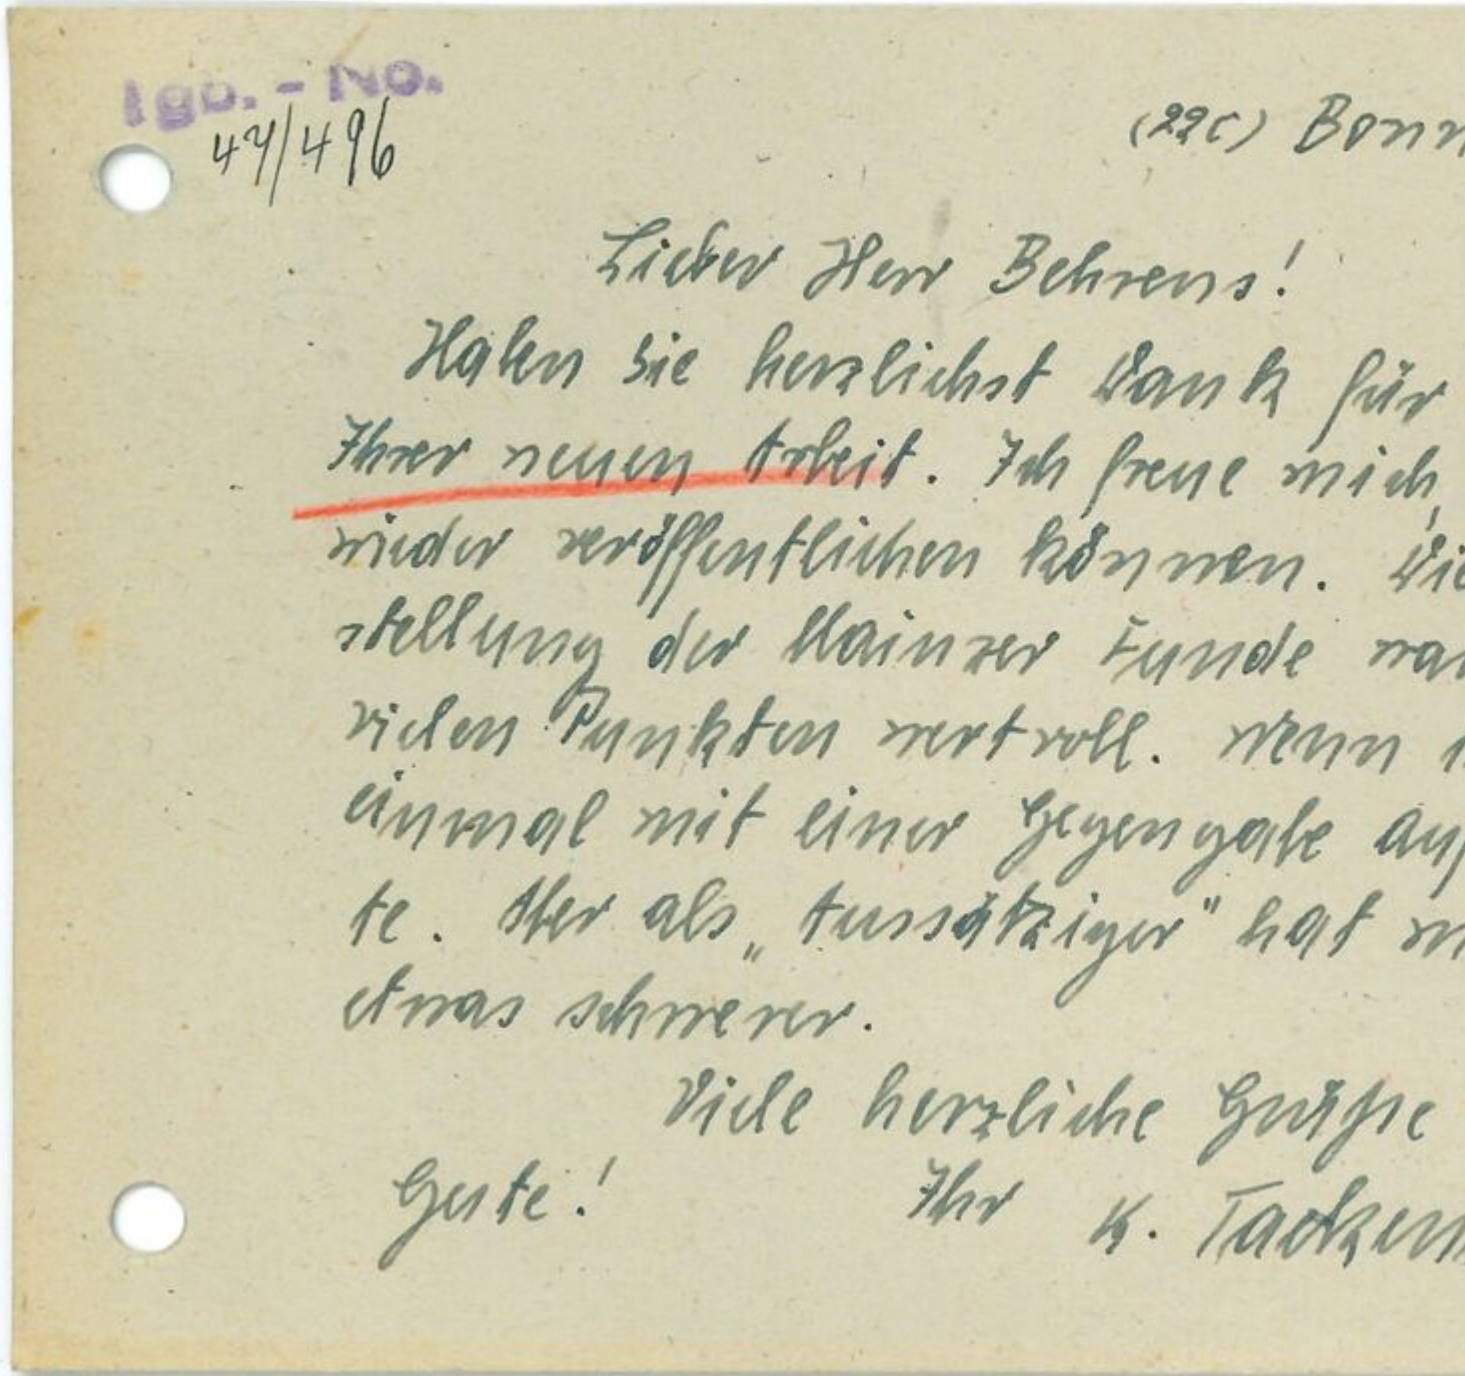 Tgb. - No.
47/496
(22c) Bonn
Lieber Herr Behrens!
Haben Sie herzlichst Dank für
Ihrer neuen Arbeit. Ich freue mich,
wieder veröffentlichen können. Die
stellung der Mainzer Funde war
vielen Punkten wertvoll. Wenn
einmal mit einer Gegengabe auf
te. Aber als „Aussätziger" hat m
etwas schwerer.
Viele herzliche Grüße
Gute! Ihr K. Tacken